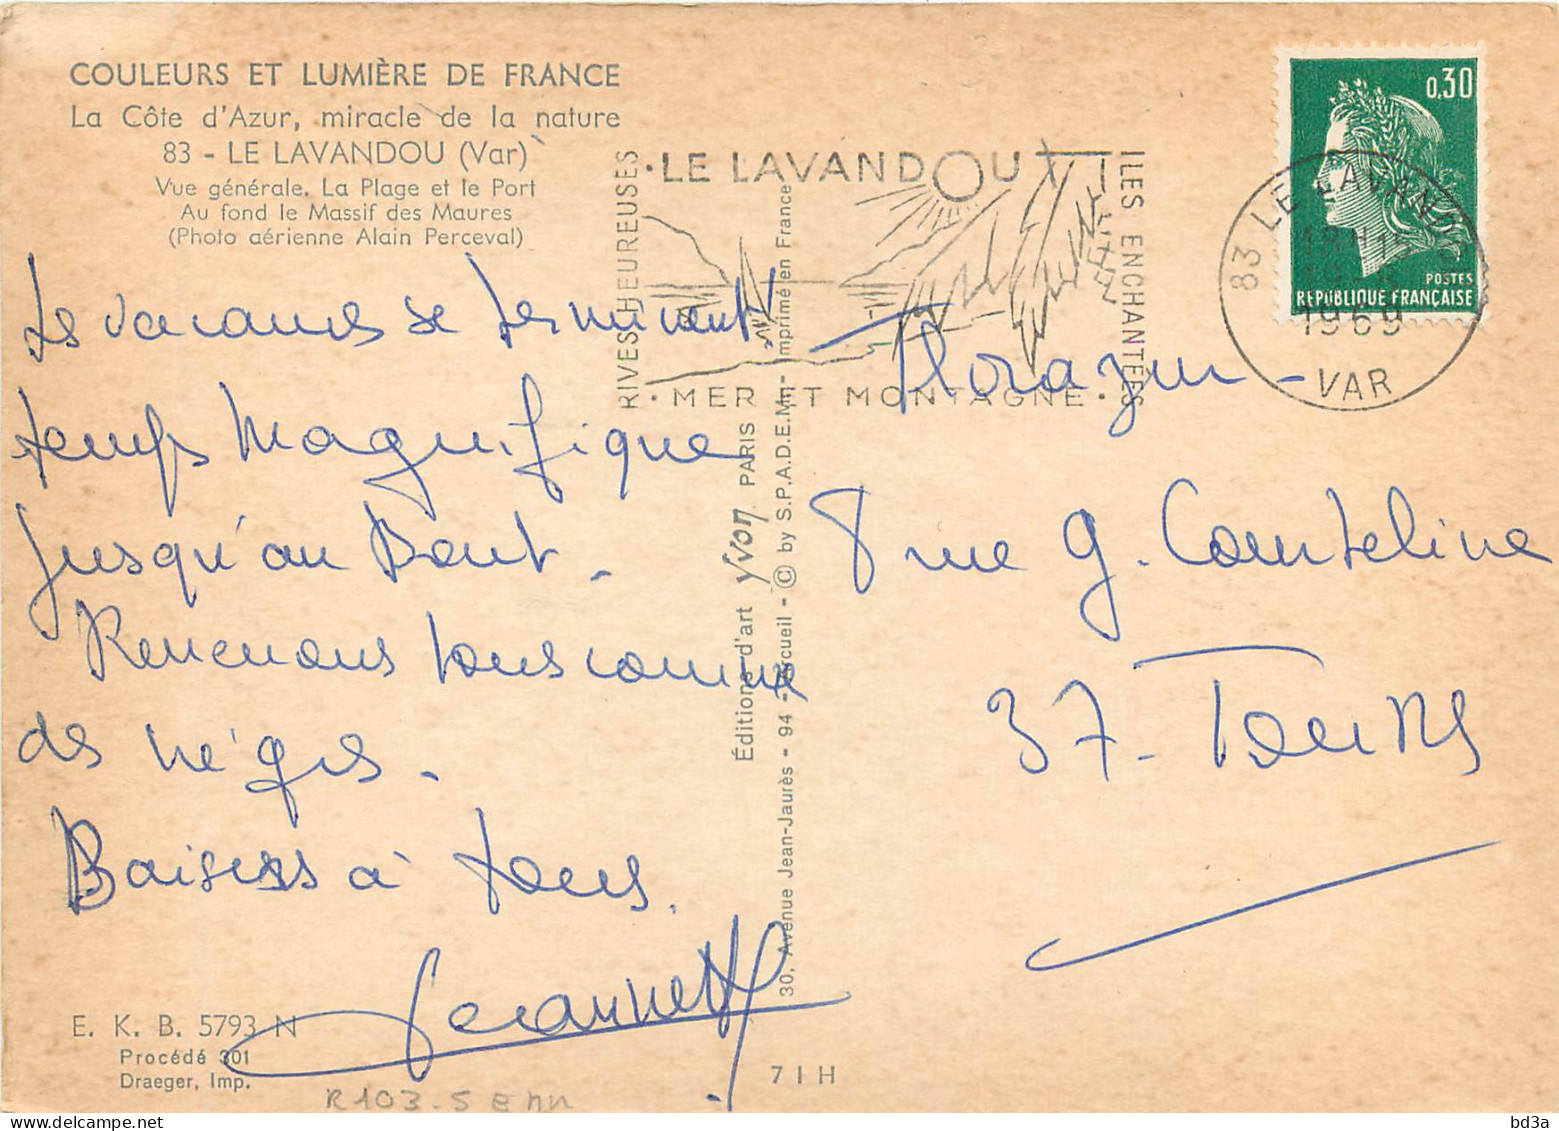 COULEURS ET LUMIÈRE DE FRANCE
La Côte d'Azur, miracle de la nature
83 - LE LAVANDOU (Var)
Vue générale. La Plage et le Port
Au fond le Massif des Maures
(Photo aérienne Alain Perceval)
Les vacances se terminent
temps magnifique
jusqu'au Bout.
Revenons tous comme
des nègres.
Baisers à tous.
Jeannette
E. K. B. 5793 N
Procédé 301
Draeger, Imp.
R103-5
7 1 H
Éditions d'art yvon PARIS
30, Avenue Jean-Jaurès - 94 - Arcueil - © by S.P.A.D.E.M. - Imprimé en France
RIVES HEUREUSES
· LE LAVANDOU
· MER ET MONTAGNE ·
ILES ENCHANTÉES
0,30
POSTES
REPUBLIQUE FRANÇAISE
83 LE LAVANDOU
1969
VAR
8 rue G. Courteline
37 - Tours
bd3a